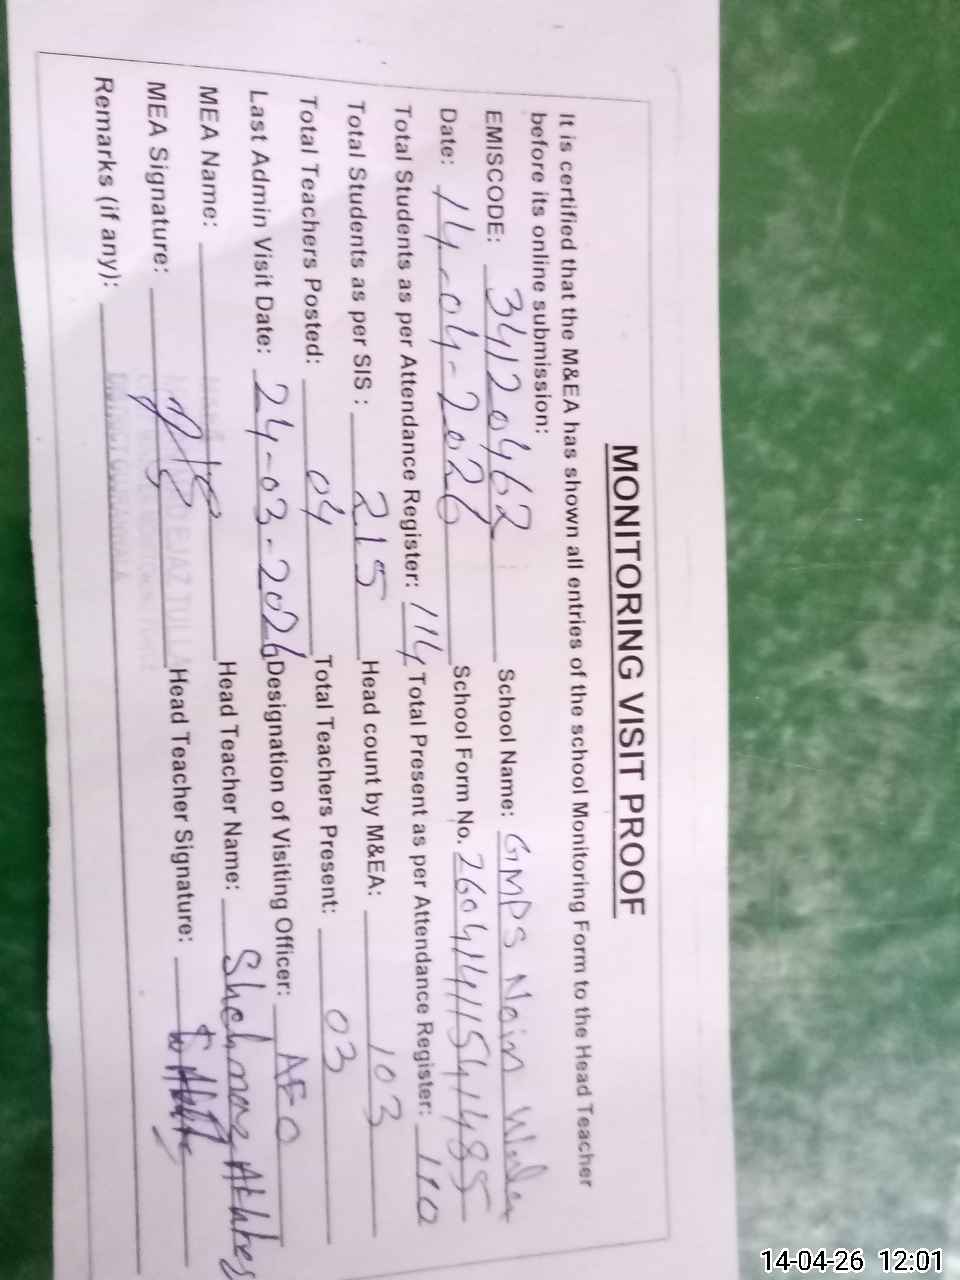 MONITORING VISIT PROOF
It is certified that the M&EA has shown all entries of the school Monitoring Form to the Head Teacher
before its online submission:
EMISCODE: 34120462 School Name: GMPS Nain
Date: 14-04-2026 School Form No. 26041411541485
Total Students as per Attendance Register: 114 Total Present as per Attendance Register: 110
Total Students as per SIS: 215 Head count by M&EA: 103
Total Teachers Posted: 04 Total Teachers Present: 03
Last Admin Visit Date: 24-03-2026 Designation of Visiting Officer: AEO
MEA Name: Head Teacher Name: Shehnaz Akhter
MEA Signature: Head Teacher Signature:
Remarks (if any):
14-04-26 12:01